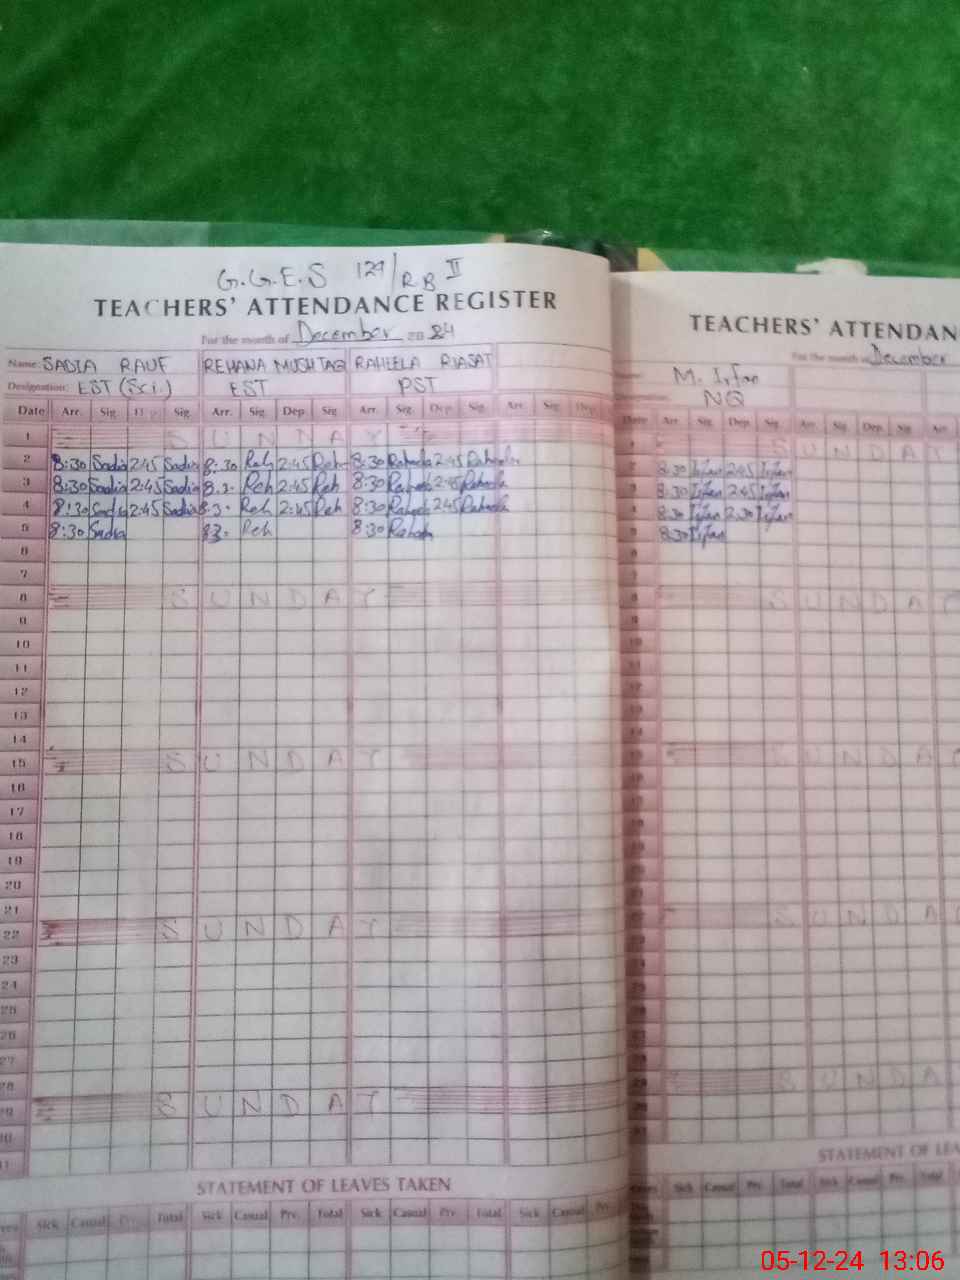 G.G.E.S 127/RB II
TEACHERS' ATTENDANCE REGISTER
For the month of December 2024
Name: SADIA RAUF REHANA MUSHTAQ RAHEELA RIASAT
Designation: EST (Sci.) EST PST
Date Arr. Sig. Dep. Sig. Arr. Sig. Dep. Sig. Arr. Sig. Dep. Sig. Arr. Sig. Dep.
1 SUNDAY
2 8:30 Sadia 2:45 Sadia 8:30 Reh 2:45 Reh 8:30 Raheela 2:45 Raheela
3 8:30 Sadia 2:45 Sadia 8:3- Reh 2:45 Reh 8:30 Raheela 2:45 Raheela
4 8:30 Sadia 2:45 Sadia 8:3- Reh 2:45 Reh 8:30 Raheela 2:45 Raheela
5 8:30 Sadia 83- Reh 8:30 Raheela
6
7
8 SUNDAY
9
10
11
12
13
14
15 SUNDAY
16
17
18
19
20
21
22 SUNDAY
23
24
25
26
27
28
29 SUNDAY
30
31
STATEMENT OF LEAVES TAKEN
Sick Casual Prv. Total Sick Casual Prv. Total Sick Casual Prv. Total Sick Casual Prv.
TEACHERS' ATTENDAN
For the month of December
M. Irfan
NQ
Date Arr. Sig. Dep. Sig. Arr. Sig. Dep. Sig. Arr
1 SUNDAY
2 8:30 Irfan 2:45 Irfan
3 8:30 Irfan 2:45 Irfan
4 8:30 Irfan 2:30 Irfan
5 8:30 Irfan
8 SUNDAY
SUNDAY
SUNDAY
29 SUNDA
STATEMENT OF LEA
Sick Casual Prv. Total Sick Casual Prv. Total
05-12-24 13:06